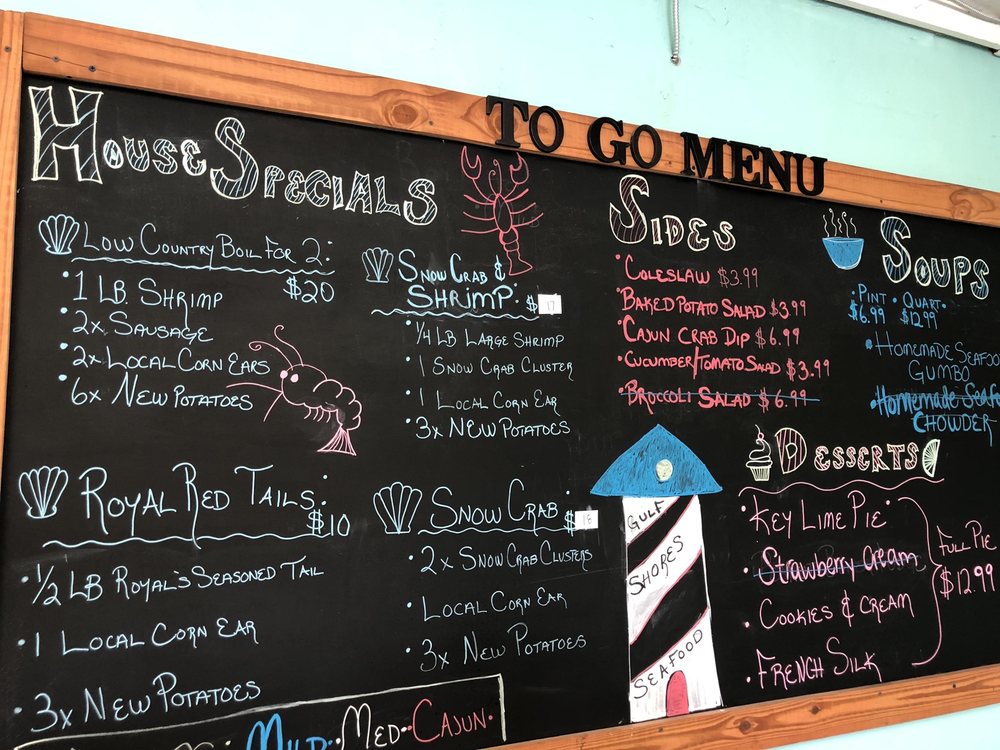 TO GO MENU
HOUSE SPECIALS
LOW COUNTRY BOIL FOR 2:
$20
• 1 LB. SHRIMP
• 2x SAUSAGE
• 2x LOCAL CORN EARS
• 6x NEW POTATOES
SNOW CRAB &
SHRIMP: $ 17
• 1/4 LB LARGE SHRIMP
• 1 SNOW CRAB CLUSTER
• 1 LOCAL CORN EAR
• 3x NEW POTATOES
ROYAL RED TAILS:
$10
• 1/2 LB ROYAL'S SEASONED TAIL
• 1 LOCAL CORN EAR
• 3x NEW POTATOES
SNOW CRAB $ 18
• 2x SNOW CRAB CLUSTERS
• LOCAL CORN EAR
• 3x NEW POTATOES
MILD·MED·CAJUN·
SIDES
• COLESLAW $3.99
BAKED POTATO SALAD $3.99
CAJUN CRAB DIP $6.99
• CUCUMBER/TOMATO SALAD $3.99
• BROCCOLI SALAD $6.99
SOUPS
• PINT • QUART •
$6.99 $12.99
• HOMEMADE SEAFOO
GUMBO
• Homemade Seaf
CHOWDER
DESSERTS
• KEY LIME PIE
• Strawberry Cream
• COOKIES & CREAM
• FRENCH SILK
FULL PIE
$12.99
GULF
SHORES
SEAFOOD